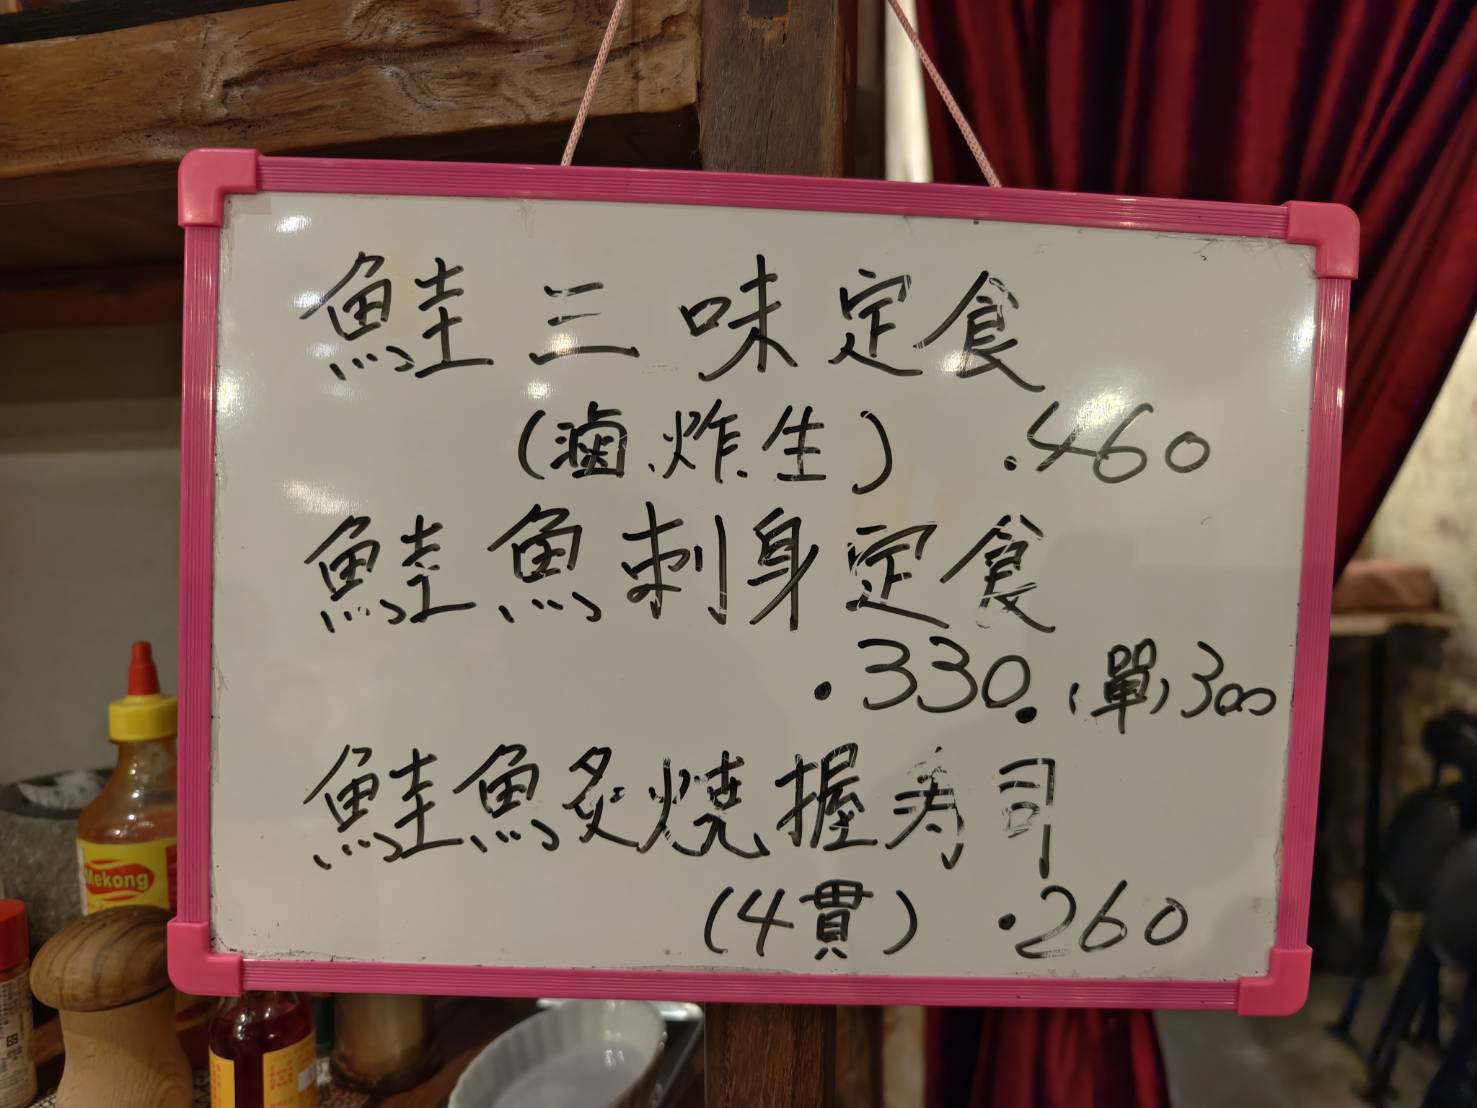 鮭三味定食
(滷.炸.生) .460
鮭魚刺身定食
.330. (單)300
鮭魚炙燒握寿司
(4貫) .260
Mekong